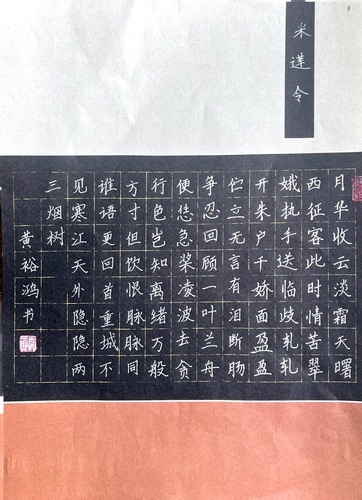 采莲令
月华收云淡霜天曙
西征客此时情苦翠
娥执手送临歧轧轧
开朱户千娇面盈盈
伫立无言有泪断肠
争忍回顾一叶兰舟
便恁急桨凌波去贪
行色岂知离绪万般
方寸但饮恨脉脉同
谁语更回首重城不
见寒江天外隐隐两
三烟树
黄裕鸿书